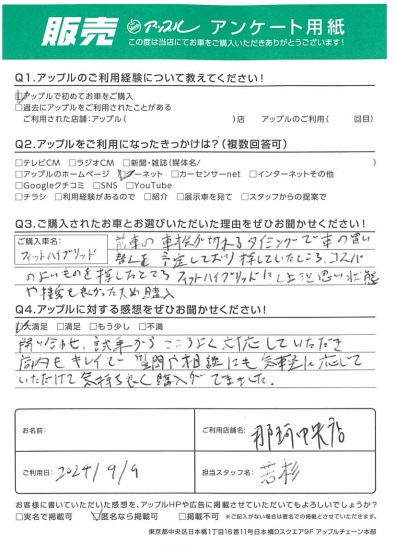 販売 アップル アンケート用紙
この度は当店にてお車をご購入いただきありがとうございます!
Q1.アップルのご利用経験について教えてください!
アップルで初めてお車をご購入
□過去にアップルをご利用されたことがある
ご利用された店舗:アップル( )店 アップルのご利用( 回目)
Q2.アップルをご利用になったきっかけは?(複数回答可)
□テレビCM □ラジオCM □新聞・雑誌(媒体名/ )
□アップルのホームページ ーネット □カーセンサーnet □インターネットその他
□Googleクチコミ □SNS □YouTube
□チラシ □利用経験があるので □紹介 □展示車を見て □スタッフからの提案で
Q3.ご購入されたお車とお選びいただいた理由をぜひお聞かせください!
ご購入車名:
フィットハイブリッド
前車の車検が切れるタイミングで車の買い
替えを予定しており探していたところ、コスパ
のよいものを探したところフィットハイブリッドに 思い状態
や 良かったため購入
Q4.アップルに対する感想をぜひお聞かせください!
大満足 □満足 □もう少し □不満
問い合わせ、試乗からこころよく対応していただき
店内もキレイで質問や相談にも気軽に応じて
いただけて気持ち良く購入ができました。
お名前:
ご利用店舗名:
那珂中央店
ご利用日:
2024/9/9
担当スタッフ名:
若杉
お客様に書いていただいた感想を、アップルHPや広告に掲載させていただいてもよろしいでしょうか?
□実名で掲載可 匿名なら掲載可 □掲載不可 ※ご記入がない場合は匿名での掲載とさせていただきます。
東京都中央区日本橋1丁目16番11号日本橋Dスクエア9F アップルチェーン本部